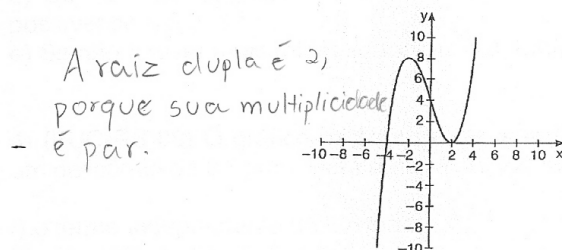 A raiz dupla é 2,
porque sua multiplicidade
- é par.
y
10
8
6
4
2
-10 -8 -6 -4 -2 2 4 6 8 10 x
-2
-4
-6
-8
-10